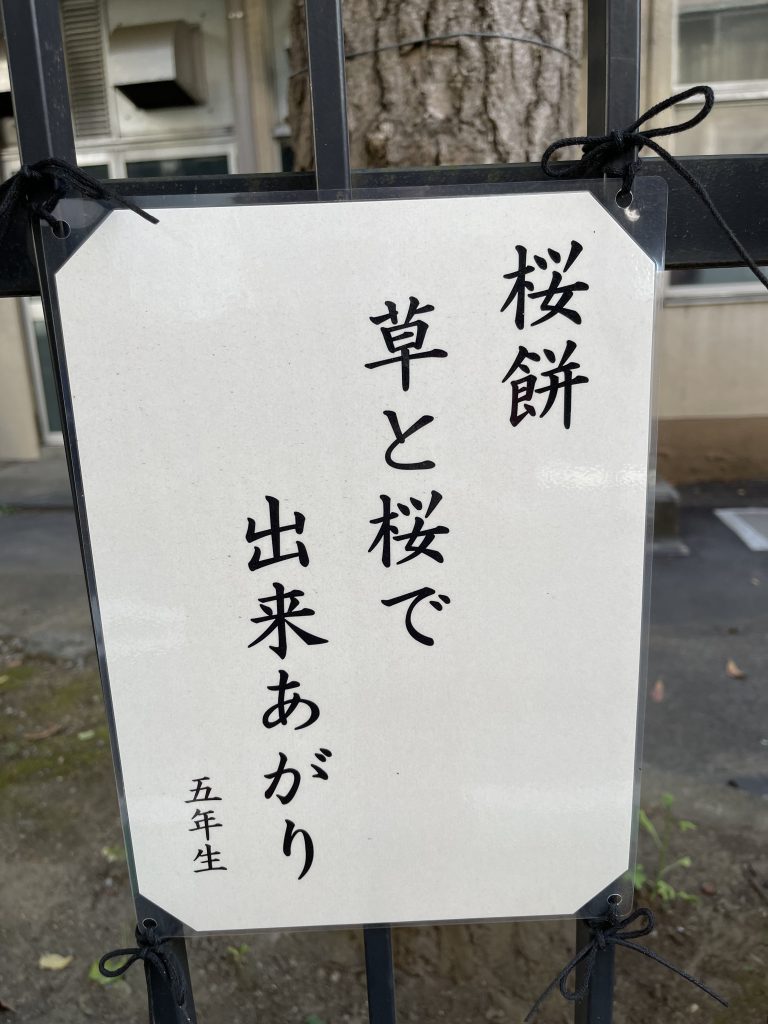 桜餅
草と桜で
出来あがり
五年生